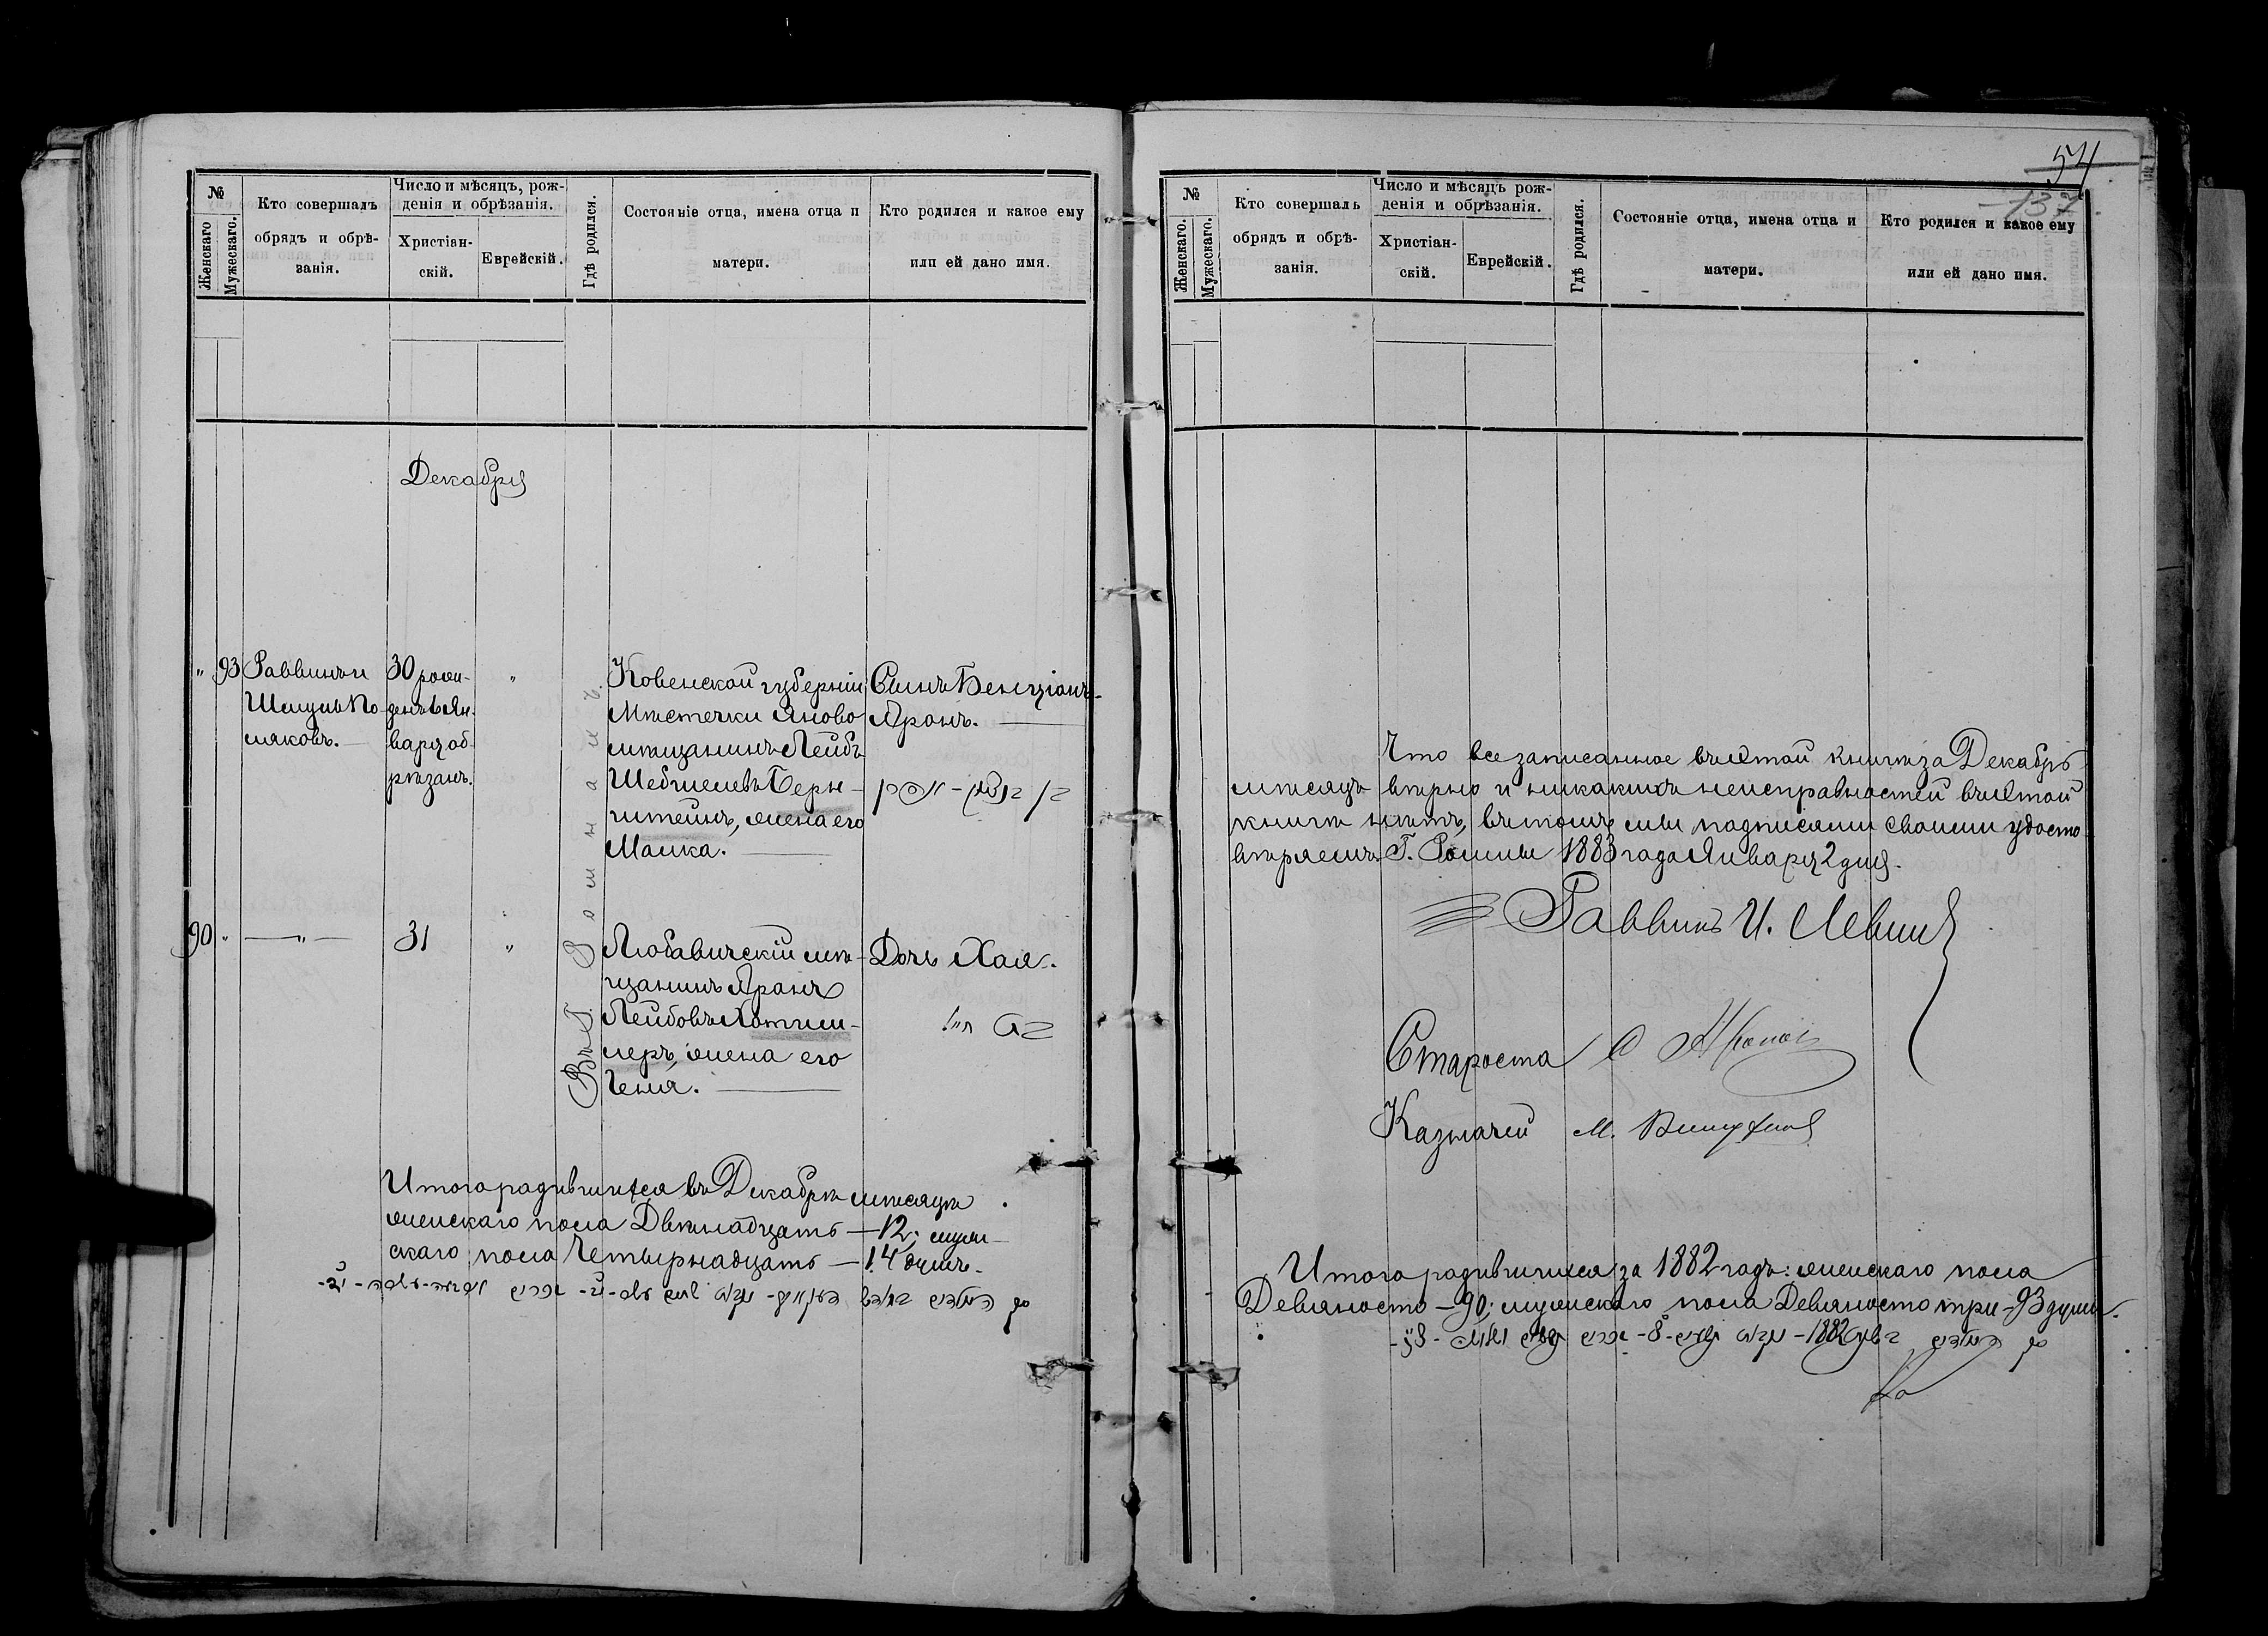 №
Женскаго
Мужескаго.
Кто совершалъ
обрядъ и обрѣ-
занія.
Число и мѣсяцъ, рож-
денія и обрѣзанія.
Христіан-
скій.
Еврейскій.
Гдѣ родился.
Состояніе отца, имена отца и
матери.
Кто родился и какое ему
или ей дано имя.
Декабря
" 93
Раввинъ и
Шмуль По-
ляковъ.
30 рож-
денъ 6 Ян-
варя об-
рѣзанъ.
"
Ковенской губерніи
Мѣстечки Яново
мѣщанинъ Лейбъ
Шебшелевъ Берн-
штейнъ, жена его
Малка.
Сынъ Бенціонъ-
Аронъ.
בן בןציון - אהרן
Въ Г. Ромнахъ
90 "
— " —
31
"
Любавичскій мѣ-
щанинъ Аронъ
Лейбовъ Хотим-
леръ, жена его
Геня.
Дочь Хая.
בת חי'
Итого родившихся въ Декабрѣ мѣсяцѣ
женскаго пола Двѣнадцать — 12; муж-
скаго пола Четырнадцать — 14 душъ.
54
137
№
Женскаго.
Мужескаго.
Кто совершалъ
обрядъ и обрѣ-
занія.
Число и мѣсяцъ рож-
денія и обрѣзанія.
Христіан-
скій.
Еврейскій.
Гдѣ родился.
Состояніе отца, имена отца и
матери.
Кто родился и какое ему
или ей дано имя.
Что все записанное въ этой книгѣ за Декабрь
мѣсяцъ вѣрно и никакихъ неисправностей въ этой
книгѣ нѣтъ, въ томъ мы подписями своими удосто-
вѣряемъ Г. Ромны 1883 года Января 2 дня.
Раввинъ И. Левин
Староста
Казначей М.
Итого родившихся за 1882 годъ: женскаго пола
Девяносто — 90; мужскаго пола Девяносто три - 93 души.